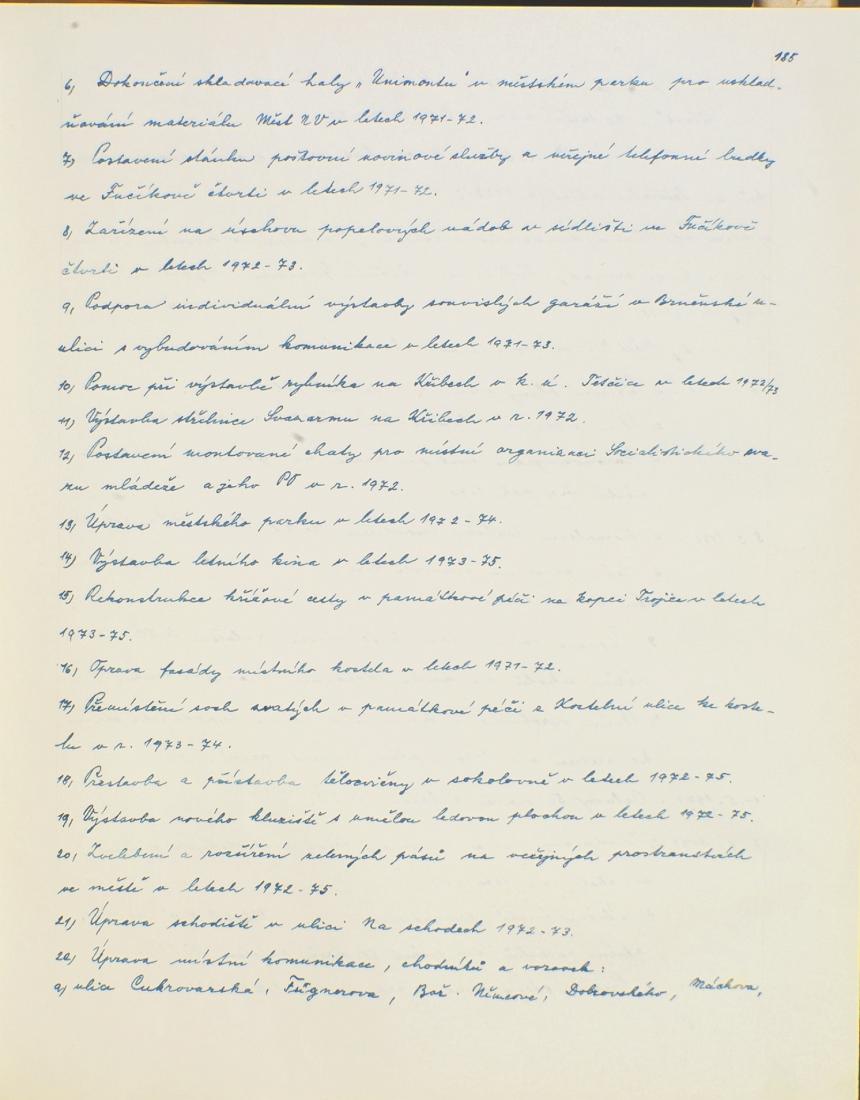 185
6, Dokončení skladovací haly „Unimontu" v městském parku pro usklad-
ňování materiálu Měst NV v letech 1971-72.
7, Postavení stánku poštovní novinové služby a veřejné telefonní budky
ve Fučíkově čtvrti v letech 1971-72.
8, Zařízení na úschovu popelových nádob v sídlišti ve Fučíkově
čtvrti v letech 1972-73.
9, Podpora individuální výstavby souvislých garáží v Brněnské u-
ulici s vybudováním komunikace v letech 1971-73.
10, Pomoc při výstavbě rybníka na Křibech v k. ú. Tetčice v letech 1972/73
11, Výstavba střelnice Svazarmu na Křibech v r. 1972.
12, Postavení montované chaty pro místní organizaci Socialistického sva-
zu mládeže a jeho PO v r. 1972.
13, Úprava městského parku v letech 1972-74.
14, Výstavba letního kina v letech 1973-75.
15, Rekonstrukce křížové cesty v památkové péči na kopci Trojice v letech
1973-75.
16, Oprava fasády místního kostela v letech 1971-72.
17, Přemístění soch svatých v památkové péči z Kostelní ulice ke koste-
lu v r. 1973-74.
18, Přestavba a přístavba tělocvičny v sokolovně v letech 1972-75.
19, Výstavba nového kluziště s umělou ledovou plochou v letech 1972-75.
20, Zvelebení a rozšíření zelených pásů na veřejných prostranstvích
ve městě v letech 1972-75.
21, Úprava schodiště v ulici Na schodech 1972-73.
22, Úprava místní komunikace, chodníků a vozovek:
a, ulice Cukrovarská, Fügnerova, Bož. Němcové, Dobrovského, Máchova,